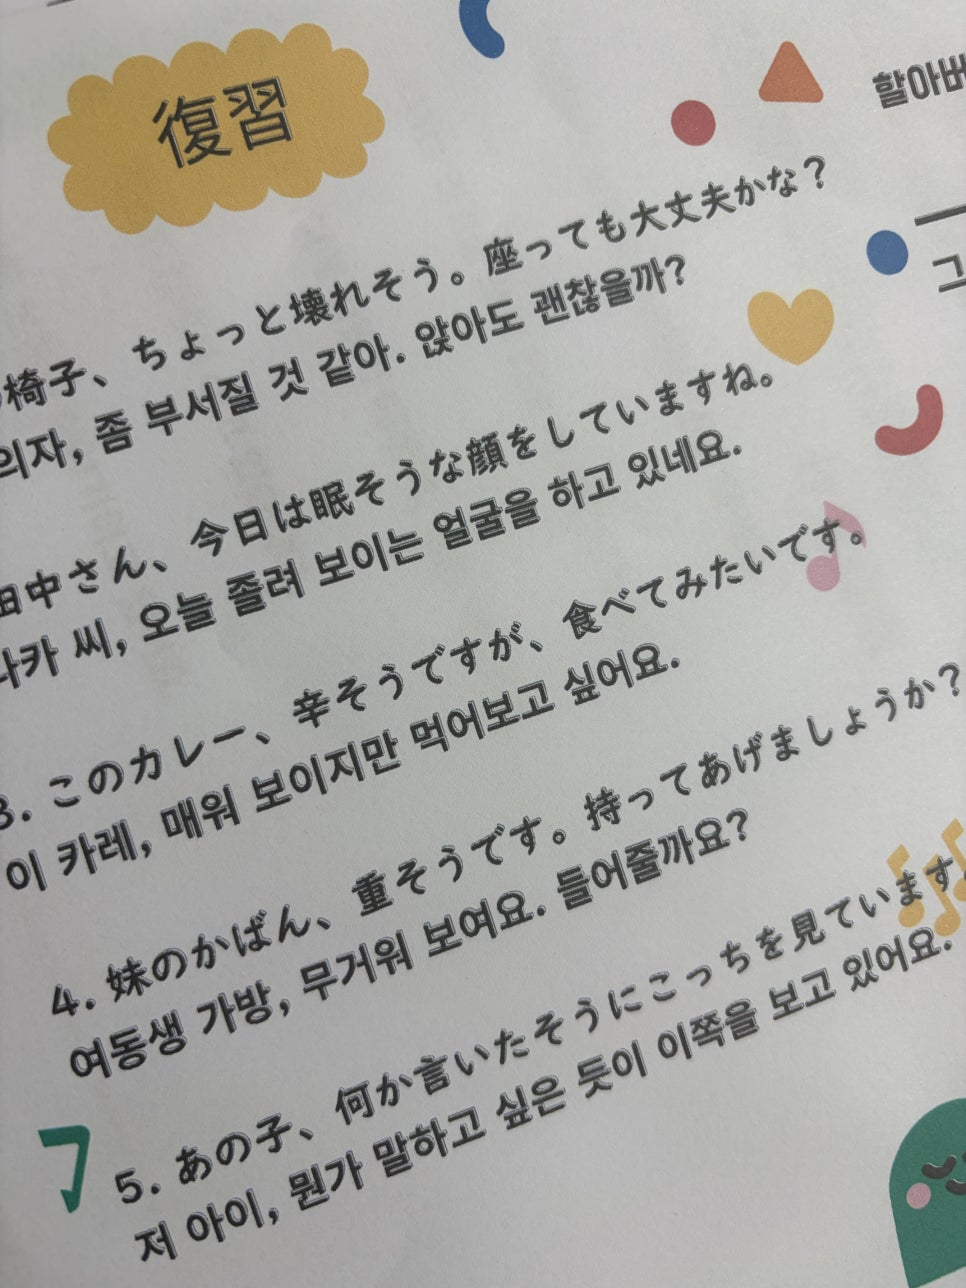 復習
할아버
椅子、ちょっと壊れそう。座っても大丈夫かな？
의자, 좀 부서질 것 같아. 앉아도 괜찮을까?
그
田中さん、今日は眠そうな顔をしていますね。
나카 씨, 오늘 졸려 보이는 얼굴을 하고 있네요.
3. このカレー、辛そうですが、食べてみたいです。
이 카레, 매워 보이지만 먹어보고 싶어요.
4. 妹のかばん、重そうです。持ってあげましょうか？
여동생 가방, 무거워 보여요. 들어줄까요?
5. あの子、何か言いたそうにこっちを見ています。
저 아이, 뭔가 말하고 싶은 듯이 이쪽을 보고 있어요.